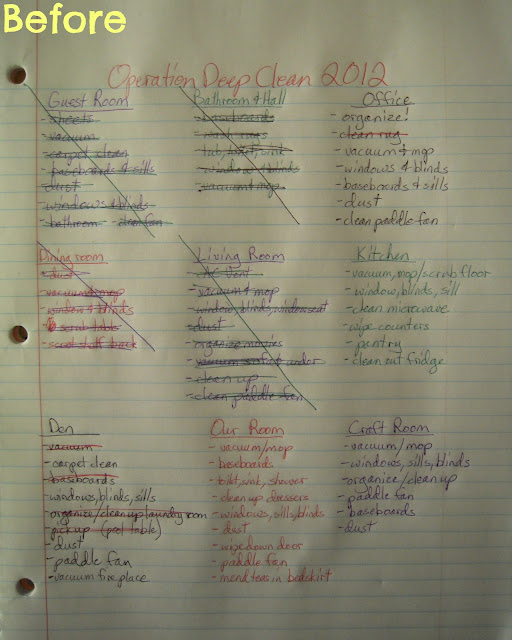 Before
Operation Deep Clean 2012
Guest Room
- sheets
- vacuum
- carpet clean
- baseboards & sills
- dust
- windows & blinds
- bathroom - clean fan
Bathroom & Hall
- baseboards
- wash rugs
- tub, toilet, sink
- windows & blinds
- vacuum & mop
Office
- organize!
- clean rug
- vacuum & mop
- windows & blinds
- baseboards & sills
- dust
- clean paddle fan
Dining room
- dust
- vacuum & mop
- windows & blinds
- scrub table
- scoot stuff back
Living Room
- AC vent
- vacuum & mop
- window, blinds, windowseat
- dust
- organize movies
- vacuum sofa & under
- clean up
- clean paddle fan
Kitchen
- vacuum, mop/scrub floor
- window, blinds, sill
- clean microwave
- wipe counters
- pantry
- clean out fridge
Den
- vacuum
- carpet clean
- baseboards
- windows, blinds, sills
- organize/clean up laundry room
- pick up (pool table)
- dust
- paddle fan
- vacuum fire place
Our Room
- vacuum/mop
- baseboards
- toilet, sink, shower
- clean up dressers
- windows, sills, blinds
- dust
- wipe down door
- paddle fan
- mend tears in bedskirt
Craft Room
- vacuum/mop
- windows, sills, blinds
- organize/clean up
- paddle fan
- baseboards
- dust